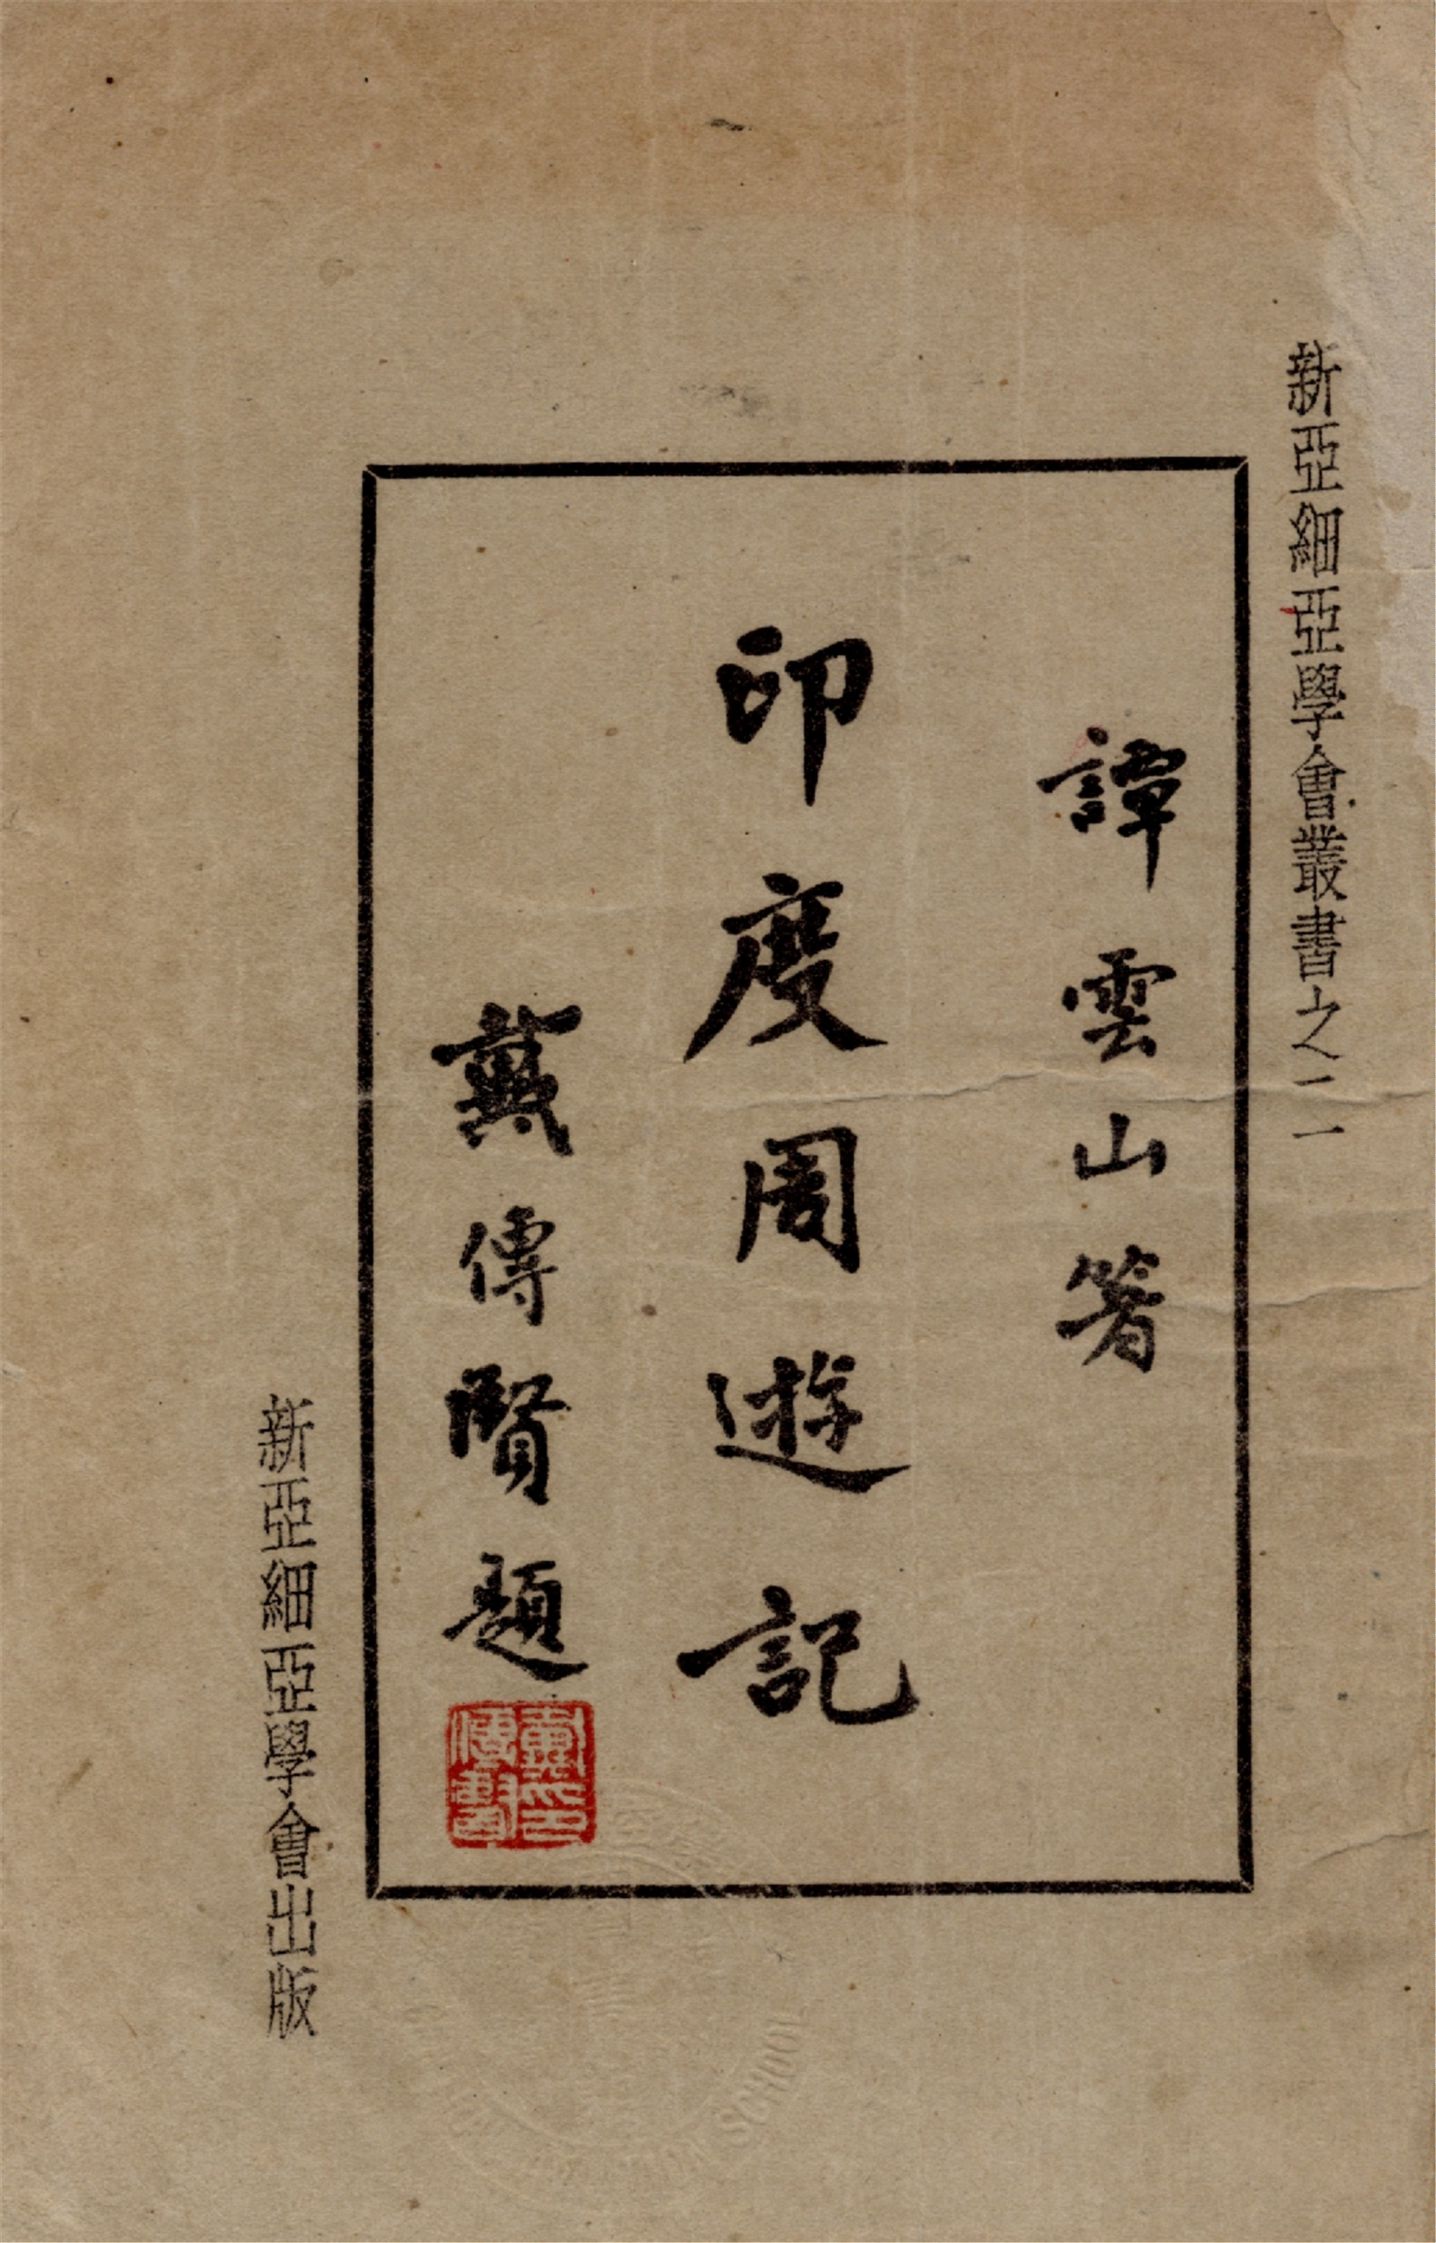 新亞細亞學會叢書之二
譚雲山箸
印度周遊記
戴傳賢題
戴印傳賢
新亞細亞學會出版
SCHOOL